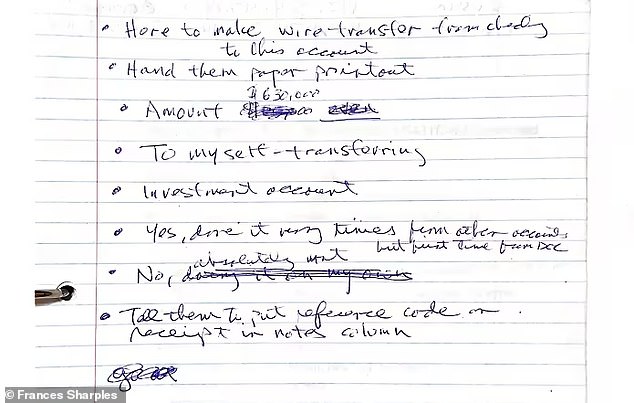 • Here to make wire-transfer from checking
to this account
• Hand them paper printout
$630,000
• Amount
• To myself-transferring
• Investment account
• Yes, done it many times from other accounts,
but first time from DCC
absolutely not
• No, doing it on my own
• Tell them to put reference code on
receipt in notes column
© Frances Sharples